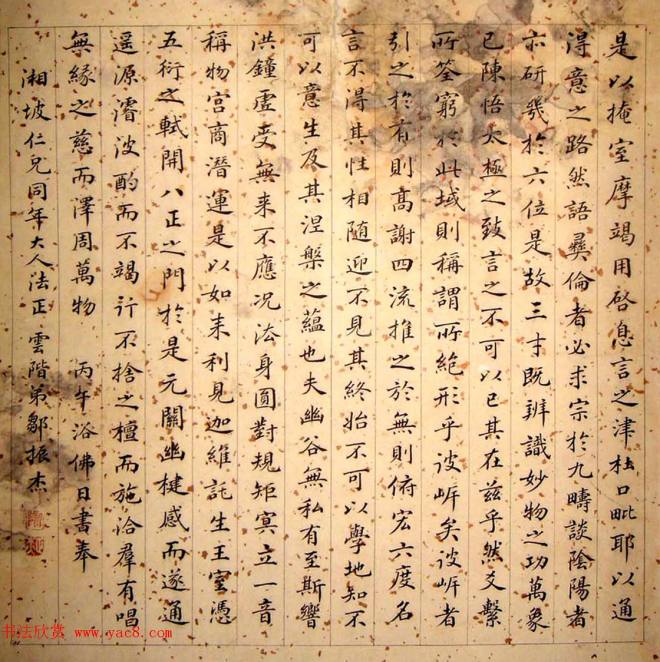 是以掩室摩竭用啓息言之津杜口毗耶以通
得意之路然語彝倫者必求宗於九疇談陰陽者
亦研幾於六位是故三才既辨識妙物之功萬象
已陳悟太極之致言之不可以已其在兹乎然爻繫
所筌窮於此域則稱謂所絕形乎彼岸矣彼岸者
引之於有則高謝四流推之於無則俯宏六度名
言不得其性相隨迎不見其終始不可以學地知不
可以意生及其涅槃之蘊也夫幽谷無私有至斯響
洪鐘虛受無来不應况法身圓對規矩冥立一音
稱物宮商潛運是以如来利見迦維託生王室憑
五衍之軾開八正之門於是元關幽楗感而遂通
遥源濬波酌而不竭行不捨之檀而施洽羣有唱
無緣之慈而澤周萬物 丙午浴佛日書奉
湘坡仁兄同年大人法正 雲階弟鄒振杰
书法欣赏 www.yac8.com